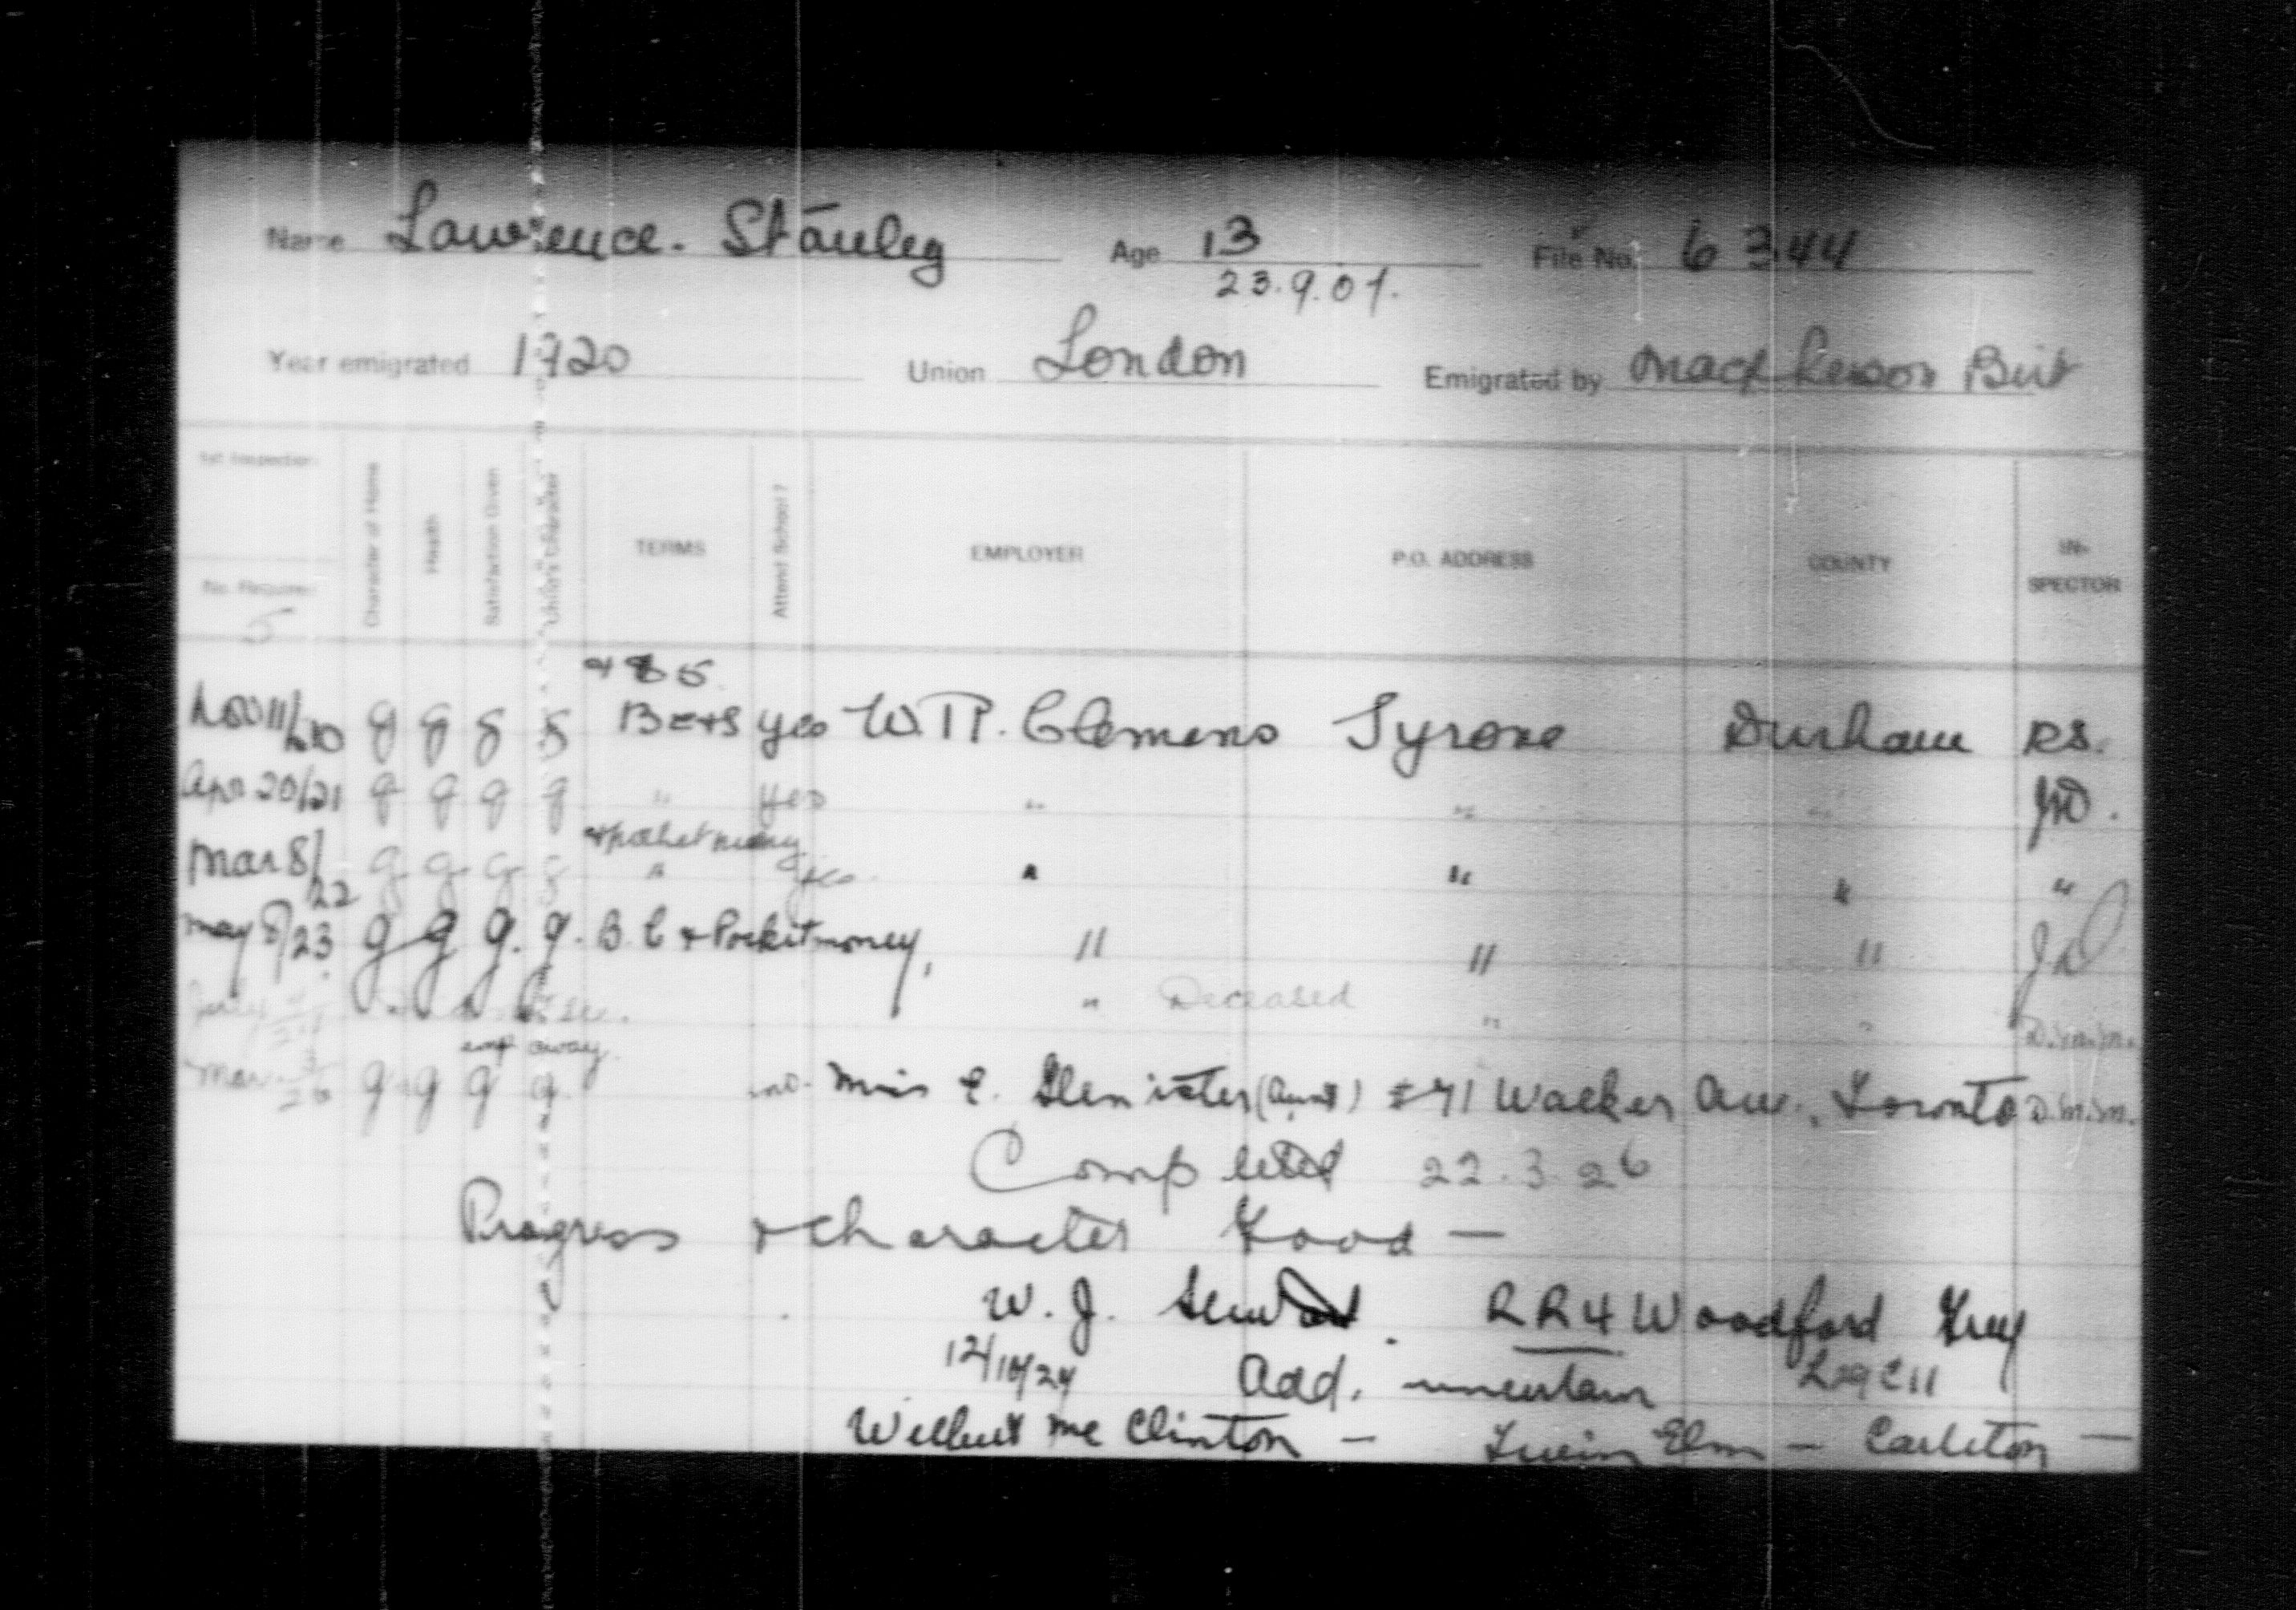 Name Lawrence. Stanley Age 13 File No. 6344
23.9.07.
Year emigrated 1920 Union London Emigrated by Macpherson Birt
1st Inspection
Character of Home Health Satisfaction Given Child's Character TERMS Attend School? EMPLOYER P.O. ADDRESS COUNTY IN-SPECTOR
No. Required
5
Nov 11/20 g g g g B C + S yes W. R. Clemens Tyrone Durham RS.
Apr 20/21 g g g g " yes " " " JD.
+ pocket money
Mar 8/22 g g g g " yes " " " "
May 8/23 g g g. g. B. C + Pocket money, " " " JD
July " Deceased " " D.M.M.
emp away.
Mar. g g g g no. Miss E. Glenister (Aunt) #71 Walker Ave., Toronto D.M.M.
Completed 22.3.26
Progress + character Good —
W. J. RR4 Woodford Grey
12/10/24 Add. uncertain L29 C11
Wilbert McClinton — Twin Elm — Carleton —